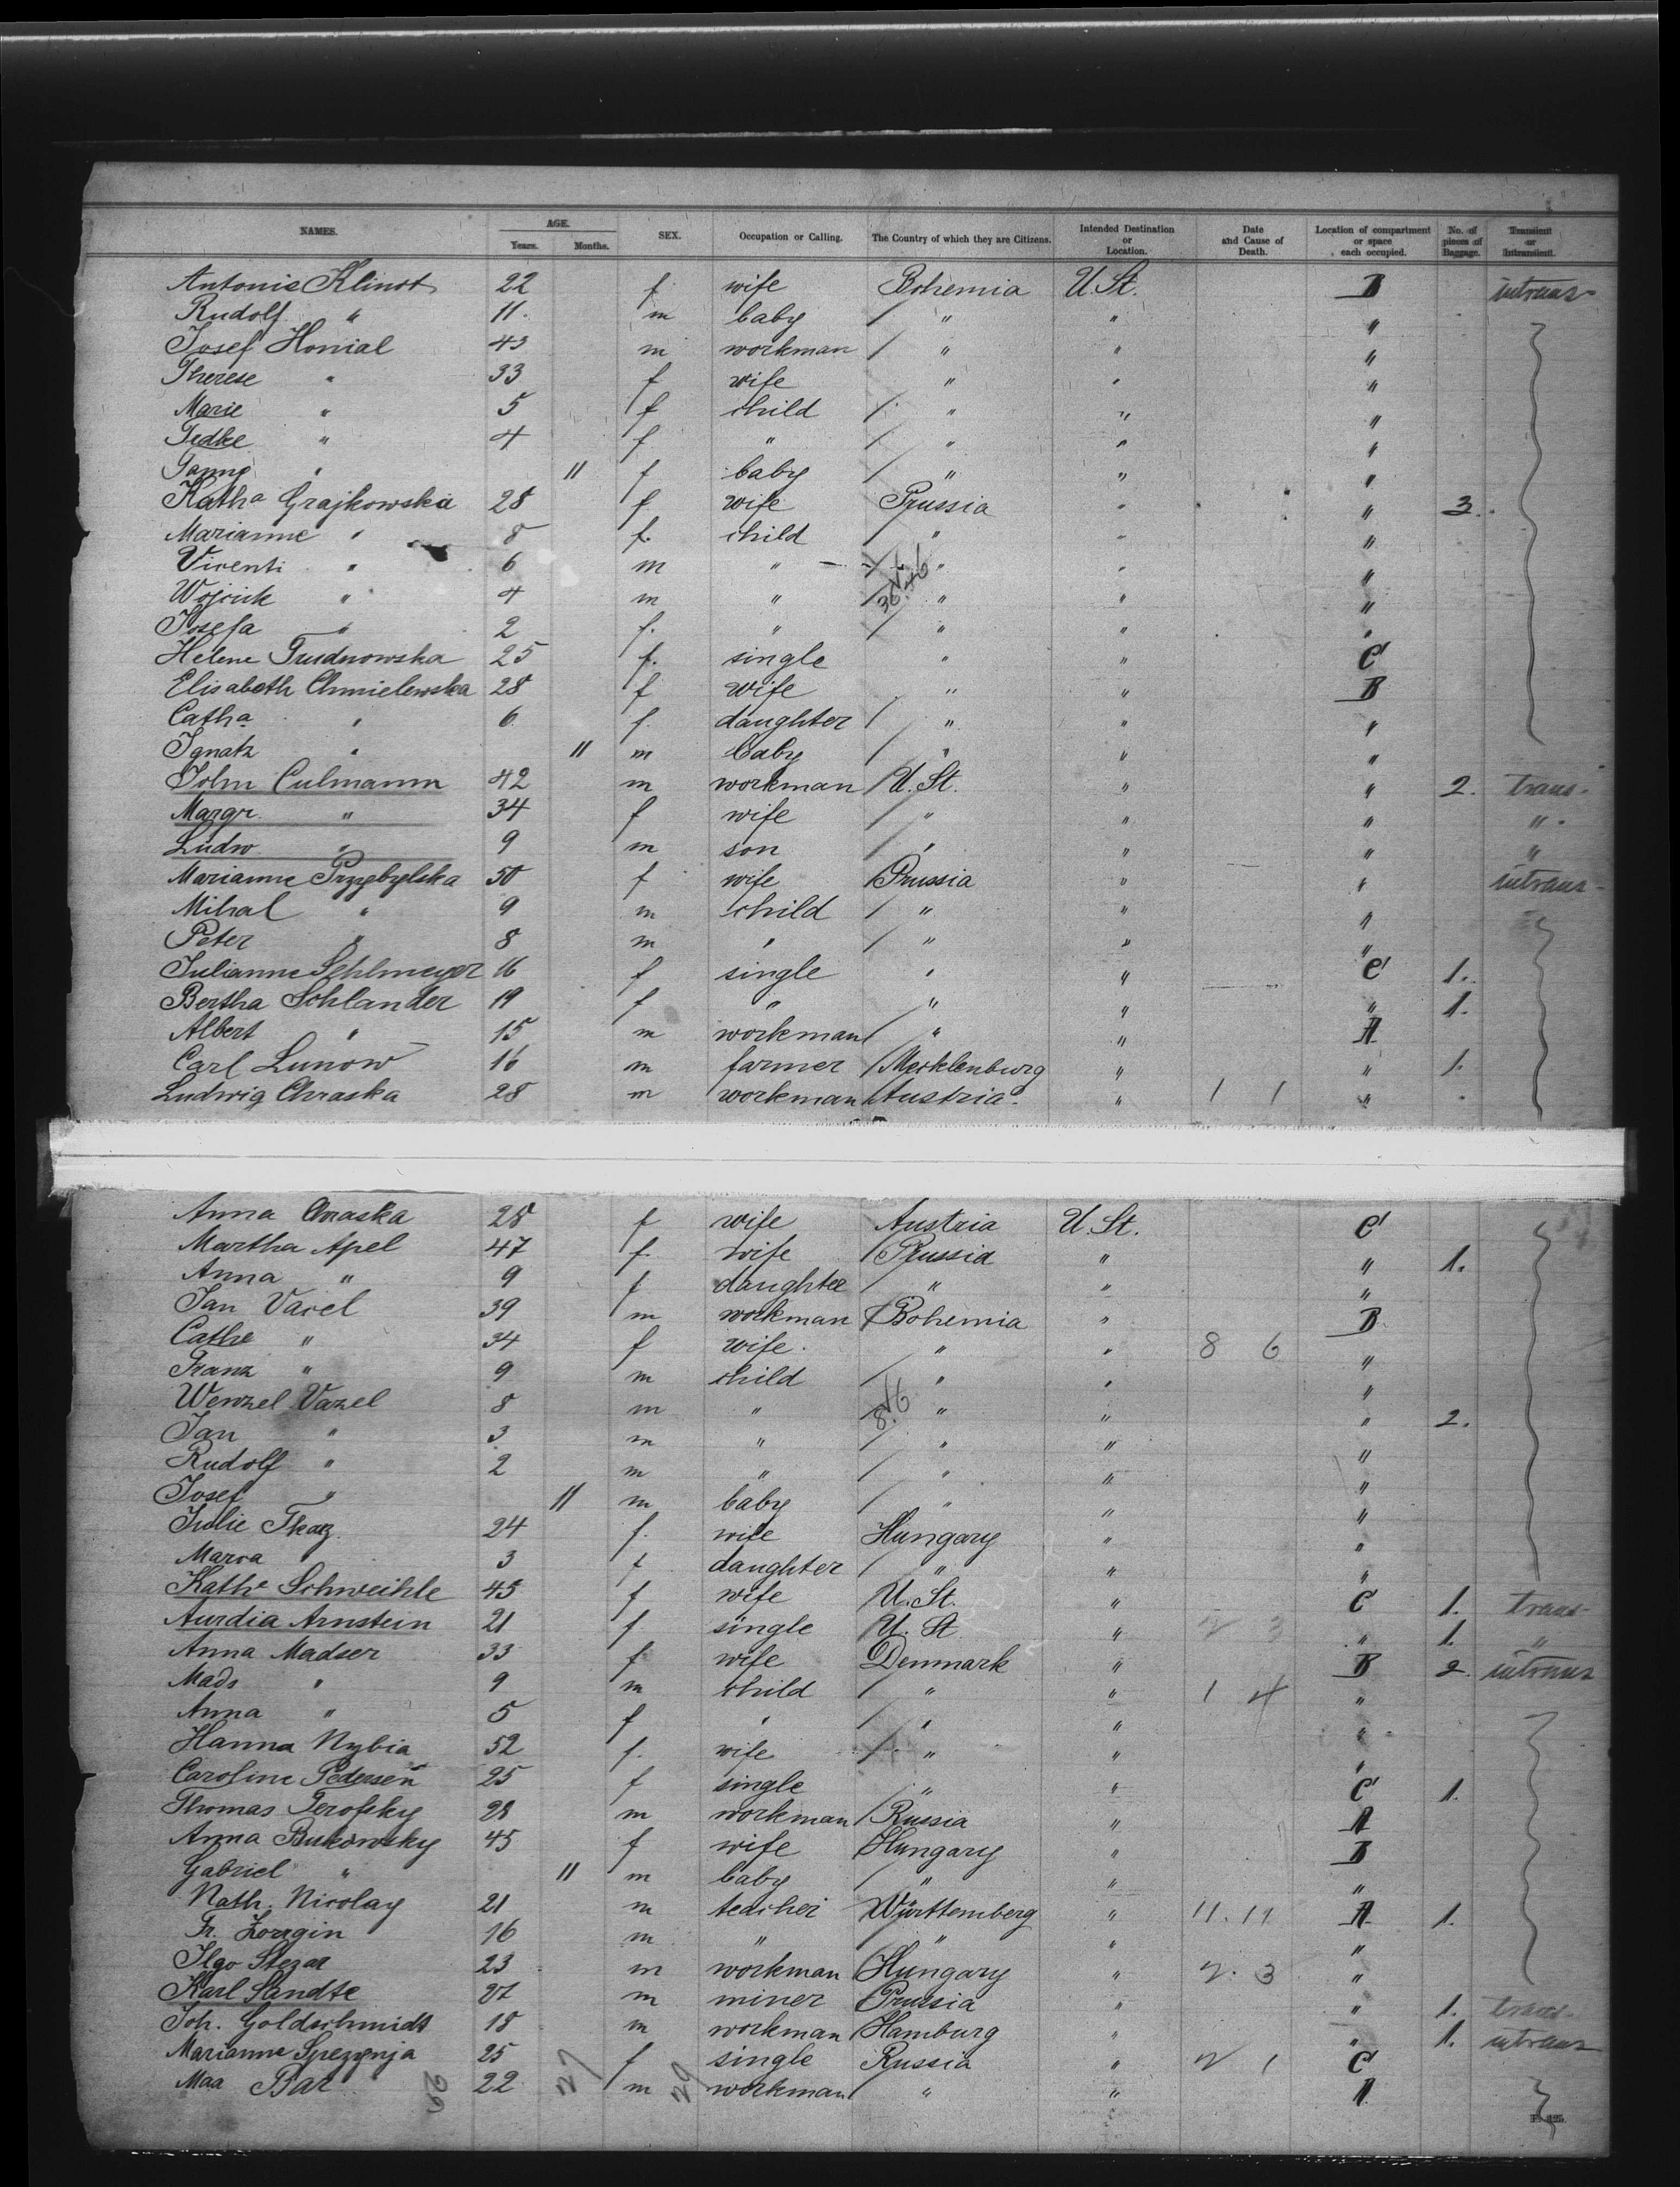 NAMES. AGE. Years. Months. SEX. Occupation or Calling. The Country of which they are Citizens. Intended Destination or Location. Date and Cause of Death. Location of compartment or space each occupied. No. of pieces of Baggage. Transient or Intransient.
Antonie Klinot 22 f wife Bohemia U. St. B intrans-
Rudolf " 11. m baby " " "
Josef Honial 43 m workman " " "
Therese " 33 f wife " " "
Marie " 5 f child " " "
4 f " " " "
" 11 f baby " " "
Katha Grajkowska 28 f wife Prussia " " 3.
Marianne " 8 f. child " " "
Vicenti " 6 m " " " "
Wojcick " 4 m " " " "
Josefa " 2 f. " " " "
Helene Trudnowska 25 f. single " " C
Elisabeth Chmielewska 28 f wife " " B
Catha " 6 f. daughter " " "
Ignatz " 11 m baby " " "
John Culmann 42 m workman U. St. " " 2. trans-
Margr. " 34 f wife " " " "
Ludw. " 9 m son " " " "
Marianne Przybylska 50 f wife Prussia " " intrans-
Mihal " 9 m child " " "
Peter " 8 m " " " "
Julianne Sehlmeyer 16 f single " " C 1.
Bertha Schlander 19 f " " " " 1.
Albert " 15 m workman " " A
Carl Lunow 16 m farmer Mecklenburg " " 1.
Ludwig Chraska 28 m workman Austria. " 1 1 "
Anna Chraska 28 f wife Austria U. St. C
Martha Apel 47 f. wife Prussia " " 1.
Anna " 9 f daughter " " "
Jan Vacel 39 m workman Bohemia " B
Cathe " 34 f wife. " " 8 6 "
Franz " 9 m child " " "
Wenzel Vazel 8 m " " " " 2.
Jan " 3 m " " " "
Rudolf " 2 m " " " "
Josef " 11 m baby " " "
Julie Tkaz 24 f. wife Hungary " "
" 3 f daughter " " "
Kathe Schweihle 45 f wife U. St. " C 1. trans-
Arnstein 21 f single U. St " 2 3 " 1. "
Anna Madser 33 f wife Denmark " B 2. intrans
Mads " 9 m child " " 1 4 "
Anna " 5 f " " " "
Hanna Nybia 52 f. wife " " "
Caroline Pedersen 25 f single " " C 1.
Thomas Gerofsky 28 m workman Russia " A
Anna Bukowsky 45 f wife Hungary " B
Gabriel " 11 m baby " " "
Nath. Nicolay 21 m teacher Württemberg " 11. 11 A 1.
Fr. 16 m " " " "
Stezar 23 m workman Hungary " 2. 3 "
Karl Sandte 27 m miner Prussia " " 1. trans-
Joh. Goldschmidt 18 m workman Hamburg " " 1. intrans
Marianne 25 f single Russia " 2 1 C
Maa Bar 22 m workman " " A